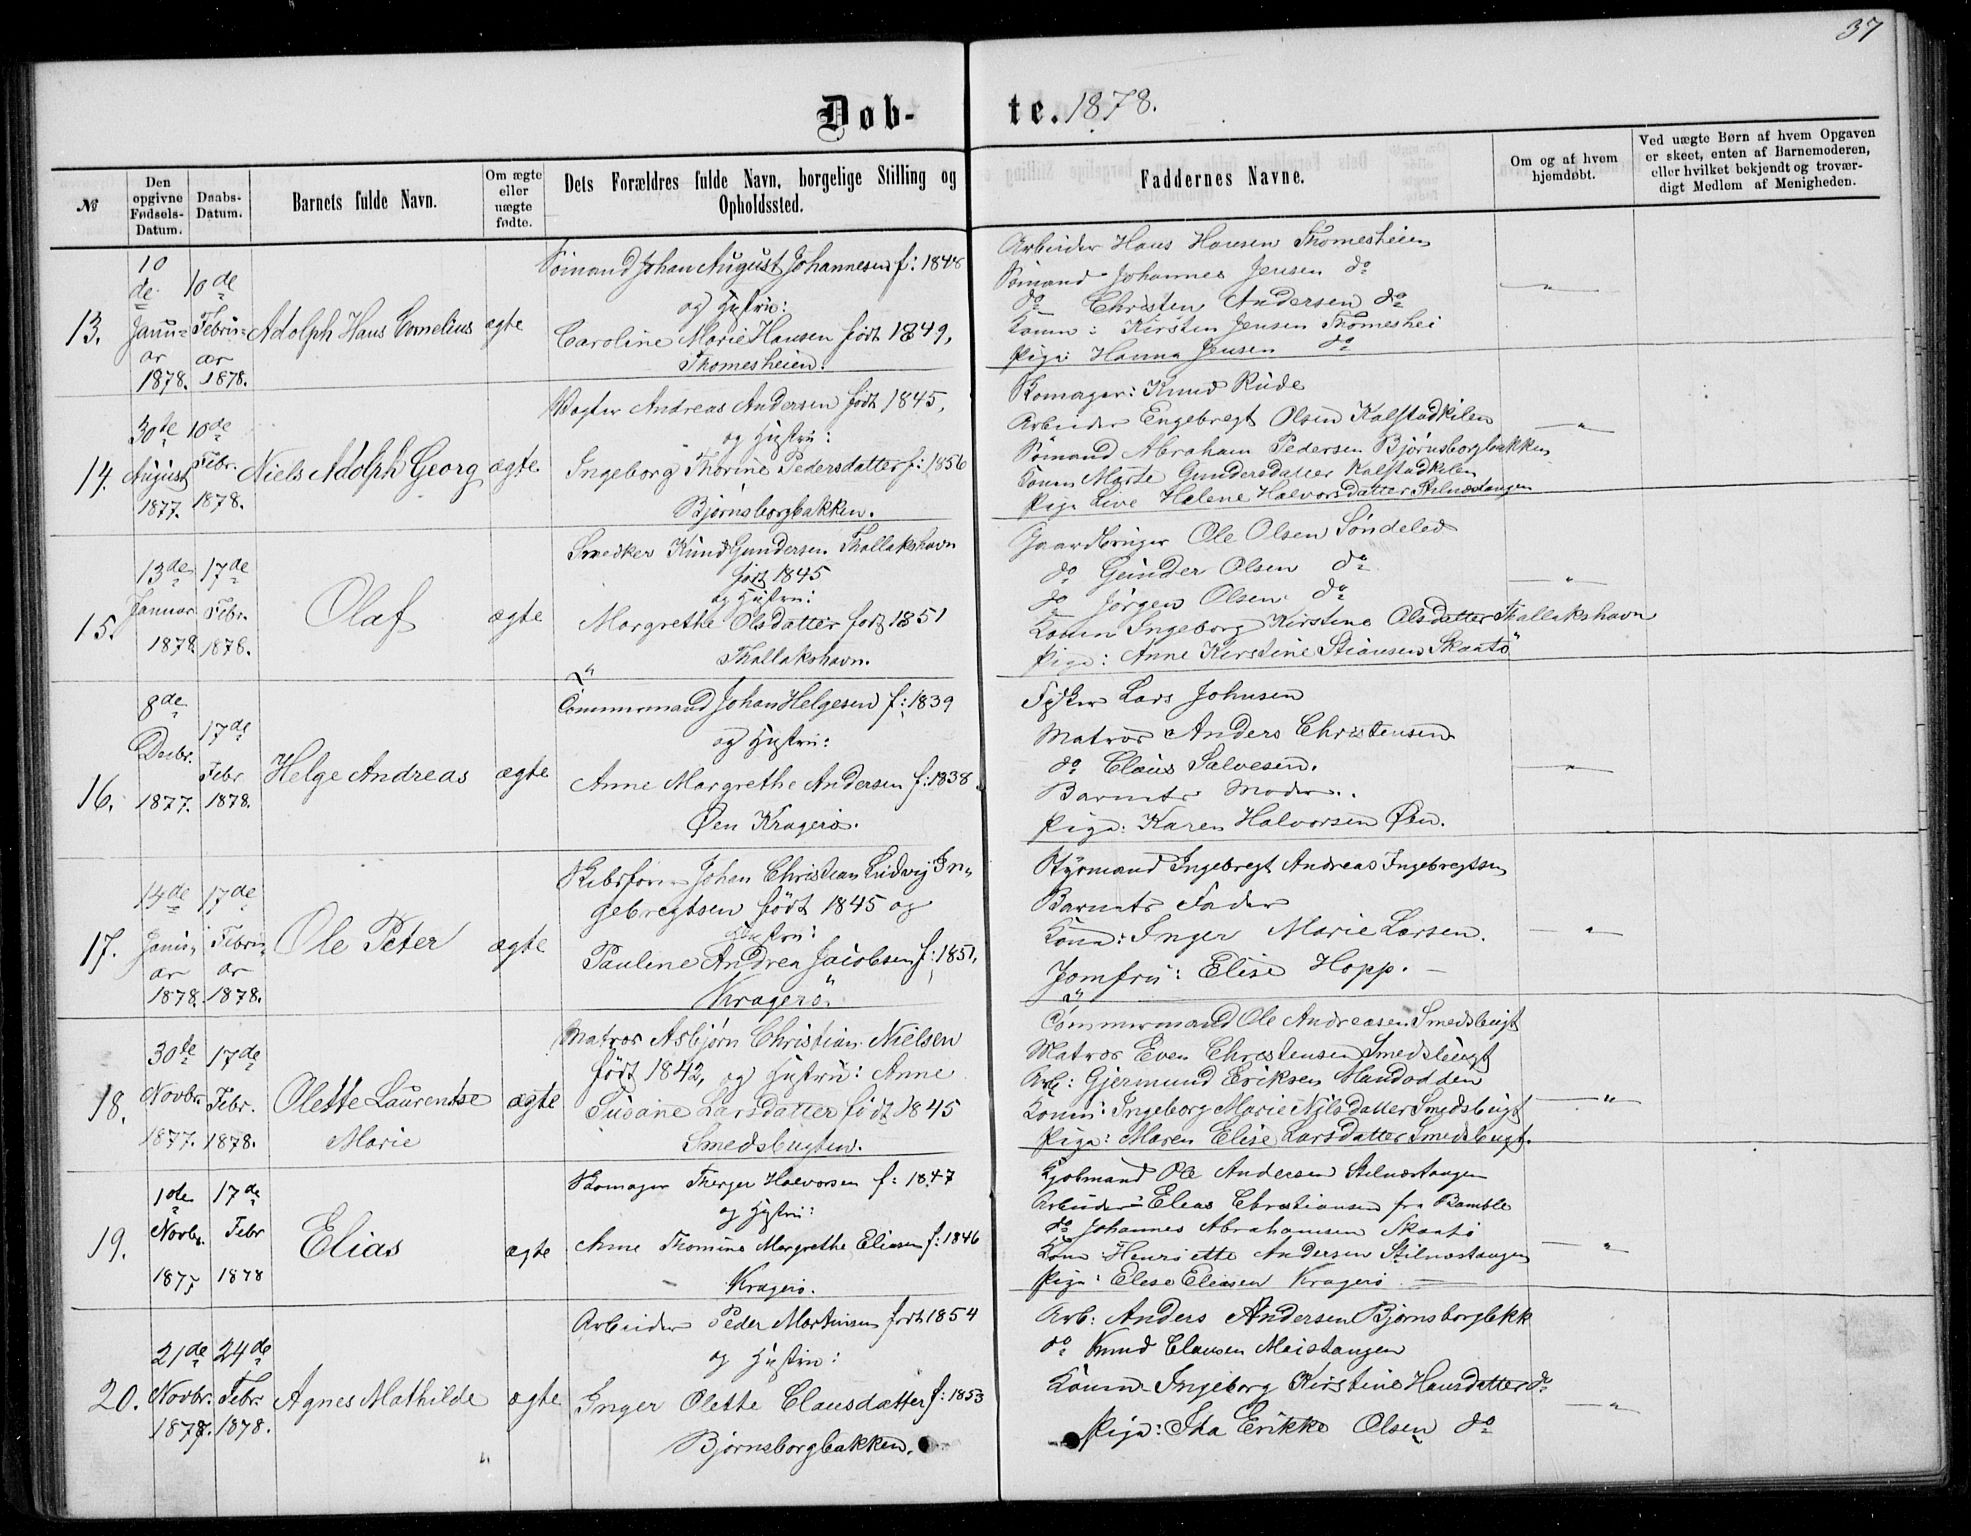 37
Døb-te. 1878.
№
Den opgivne Fødsels-Datum.
Daabs-Datum.
Barnets fulde Navn.
Om ægte eller uægte fødte.
Dets Forældres fulde Navn, borgelige Stilling og Opholdssted.
Faddernes Navne.
Om og af hvem hjemdøbt.
Ved uægte Børn af hvem Opgaven er skeet, enten af Barnemoderen, eller hvilket bekjendt og troværdigt Medlem af Menigheden.
13.
10de Januar 1878.
10de Februar 1878.
Adolph Hans Cornelius
ægte
Sömand Johan August Johannesen f: 1848
og Hustru:
Caroline Marie Hansen født 1849,
Thomesheien.
Arbeider Hans Hansen Thomesheien
Sömand Johannes Jensen do
do Christen Andersen do
Konen: Kirsten Jensen Thomeshei
Pige: Hanna Jensen do
"
14.
30de August 1877.
10de Febr. 1878.
Niels Adolph Georg
ægte
Andreas Andersen født 1845,
og Hustru:
Ingeborg Thorine Pedersdatter f: 1856
Bjørnsborgbakken.
Skomager: Knud Rude
Arbeider Engebregt Olsen Kalstadkilen
Sömand Abraham Pedersen Bjørnsborgbakken
Konen Marte Gundersdatter Kalstadkilen
Pige Live Helene Halvorsdatter Stilnæstangen
"
15.
13de Januar 1878
17de Febr. 1878.
Olaf
ægte
Snedker Knud Gundersen Thallakshavn
født 1845
og Hustru:
Margrethe Olsdatter født 1851
Thallakshavn.
Gaardbruger Ole Olsen Söndeled
do Gunder Olsen do
do Jörgen Olsen do
Konen Ingeborg Kirstine Olsdatter Thallakshavn
Pige: Anne Kirstine Stiansen Skaatö
"
16.
8de Decbr. 1877.
17de Febr. 1878.
Helge Andreas
ægte
Tömmermand Johan Helgesen f: 1839
og Hustru:
Anne Margrethe Andersen f: 1838
Øen Kragerö.
Fisker Lars Johnsen
Matros Anders Christensen
do Claus Salvesen.
Barnets Moder.
Pige: Karen Halvorsen Øen.
"
17.
14de Januar 1878.
17de Februar 1878.
Ole Peter
ægte
Skibsförer Johan Christian Ludvig In-
gebregtsen født 1845 og
Hustru:
Pauline Andrea Jacobsen f: 1851,
Kragerö.
Styrmand Ingebregt Andreas Ingebregtsen
Barnets Fader
Kone: Inger Marie Larsen.
Jomfru: Elise Hopp.
"
18.
30te Novbr. 1877.
17de Febr. 1878.
Olette Laurentse
Marie
ægte
Matros Asbjørn Christian Nielsen
født 1842, og Hustru: Anne
Susane Larsdatter født 1845
Smedsbugten.
Tömmermand Ole Andreasen Smedsbugt
Matros Even Christensen Smedsbugt
Arb: Gjermund Eriksen
Konen: Ingeborg Marie Nilsdatter Smedsbugt
Pige: Maren Elise Larsdatter Smedsbugt.
"
19.
1de Novbr. 1877
17de Febr 1878
Elias
ægte
Skomager Halvorsen f: 1847
og Hustru:
Anne Thomine Margrethe Eliasen f: 1846
Kragerö.
Ole Andersen Stilnæstangen
Arbeider Elias Christiansen fra Bamble
do Johannes Abrahamsen Skaatö
Kone Henriette Andersen Stilnæstangen
Pige: Elise Eliasen Kragerö
"
20.
21de Novbr. 1877.
24de Febr. 1878.
Agnes Mathilde
ægte
Arbeider Peder Martinsen født 1854
og Hustru:
Inger Olette Clausdatter f: 1853
Bjørnsborgbakken.
Arb: Anders Andersen Bjørnsborgbkk
do Knud Clausen
Konen Ingeborg Kirstine Hansdatter do
Pige: Ida Erikke Olsen do
"